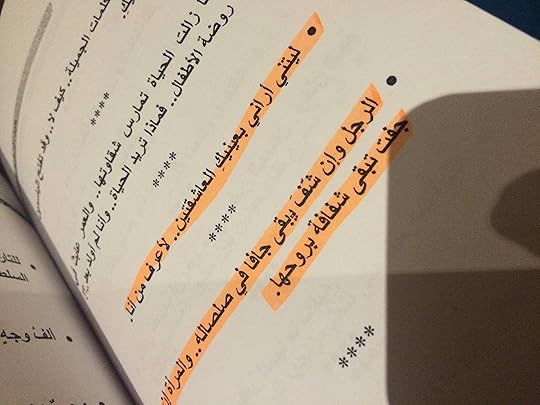 كلمات الجميلة.. كيف لا.. وقد
****
ما زالت الحياة تمارس شقاوتها.. والعمر
روضة الأطفال.. فماذا تريد الحياة.. وأنا لم أولد بعد؟!
****
• ليتني أراني بعينيكِ العاشقتين.. لأعرف من أنا.
****
• الرجل وإن شفّ يبقى جافا في صلصاله.. والمرأة إن
جفت تبقى شفافة بروحها.
****
• ألف وجه